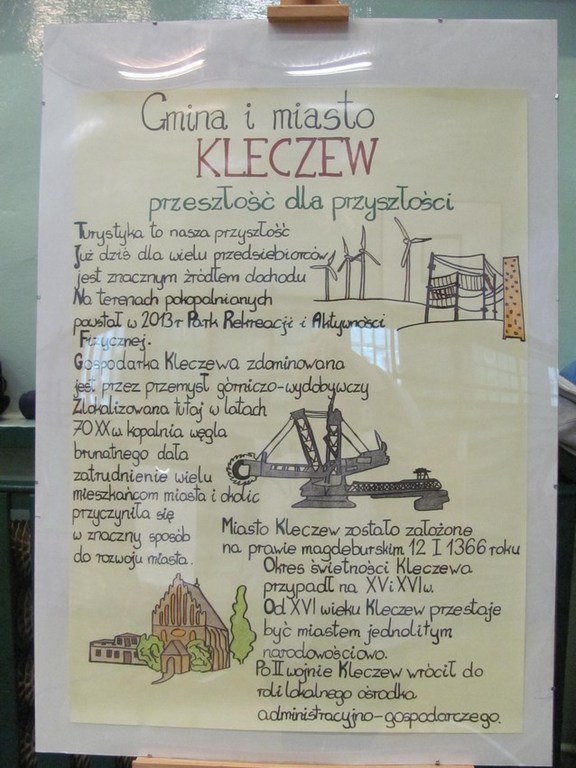 Gmina i miasto
KLECZEW
przeszłość dla przyszłości
Turystyka to nasza przyszłość
Już dziś dla wielu przedsiebiorców
jest znacznym źródłem dochodu
Na terenach pokopalnianych
powstał w 2013 r Park Rekreacji i Aktywności
Fizycznej.
Gospodarka Kleczewa zdominowana
jest przez przemysł górniczo-wydobywczy
Zlokalizowana tutaj w latach
70 XX w. kopalnia węgla
brunatnego dała
zatrudnienie wielu
mieszkańcom miasta i okolic
przyczyniła się
w znaczny sposób
do rozwoju miasta.
Miasto Kleczew zostało założone
na prawie magdeburskim 12 I 1366 roku
Okres świetności Kleczewa
przypadł na XV i XVI w.
Od XVI wieku Kleczew przestaje
być miastem jednolitym
narodowościowo.
Po II wojnie Kleczew wrócił do
roli lokalnego ośrodka
administracyjno-gospodarczego.